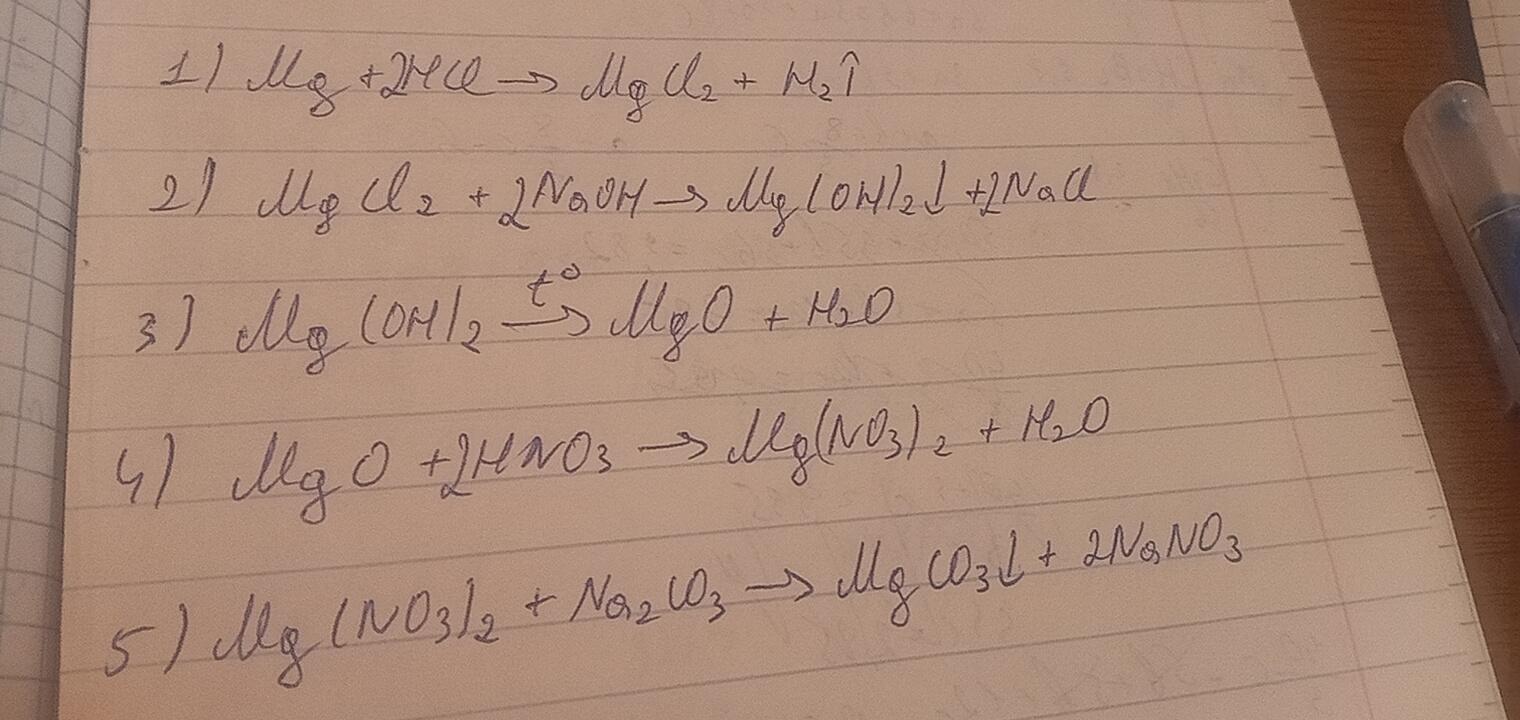 1) Mg + 2HCl → MgCl₂ + H₂↑
2) MgCl₂ + 2NaOH → Mg(OH)₂↓ + 2NaCl
3) Mg(OH)₂ →t° MgO + H₂O
4) MgO + 2HNO₃ → Mg(NO₃)₂ + H₂O
5) Mg(NO₃)₂ + Na₂CO₃ → MgCO₃↓ + 2NaNO₃